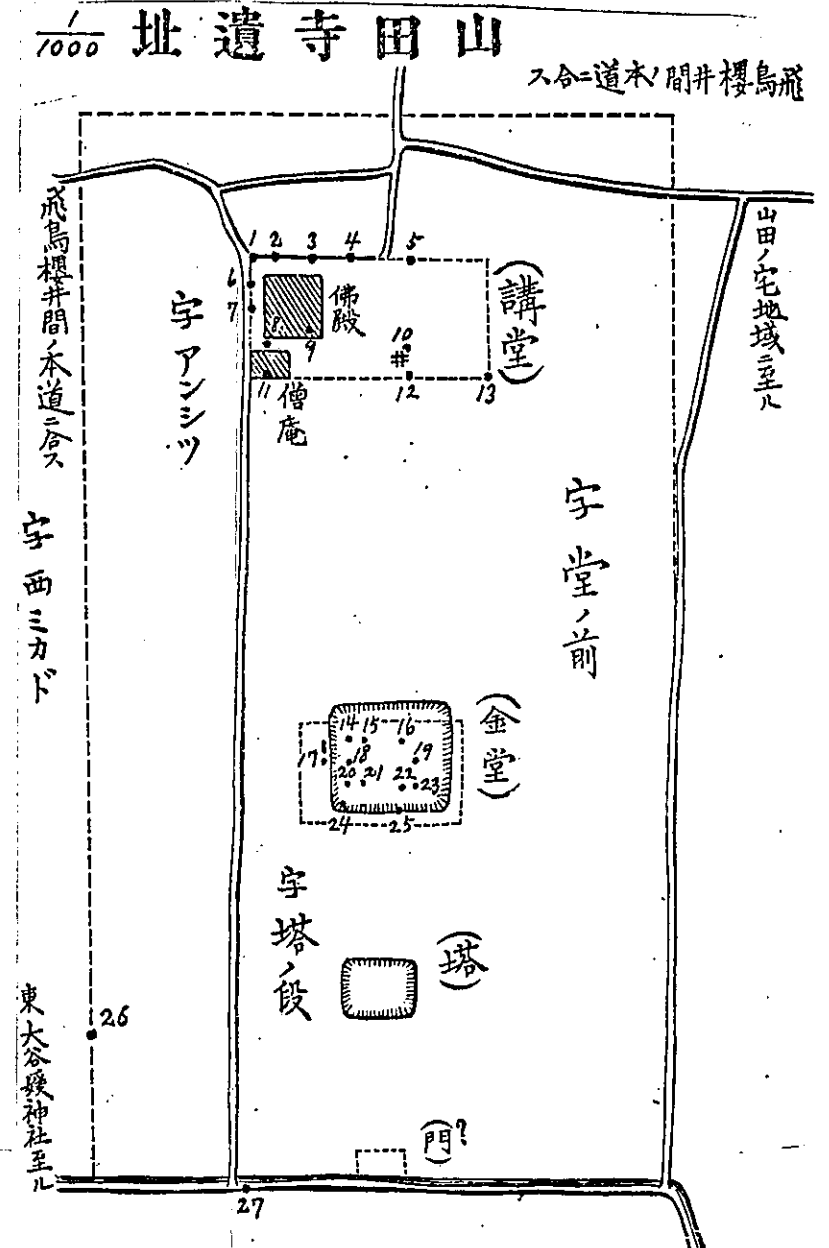 山田寺遺址 1/1000
飛鳥櫻井間ノ本道ニ合ス
飛鳥櫻井間ノ本道ニ合ス
山田ノ宅地域ニ至ル
1 2 3 4 5
6
7
佛殿
8
9
10
井
11
12
13
僧庵
(講堂)
字アンシツ
字西ミカド
字堂ノ前
(金堂)
14 15 16
17 18 19
20 21 22 23
24 25
字塔ノ段
(塔)
東大谷媛神社至ル
26
(門)?
27